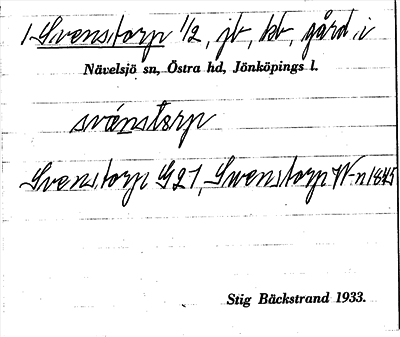 1 Svenstorp 1/2, jb, kb, gård i
Nävelsjö sn, Östra hd, Jönköpings l.
svänstorp
Svenstorp G 21, Swenstorp W-n 1845
Stig Bäckstrand 1933.